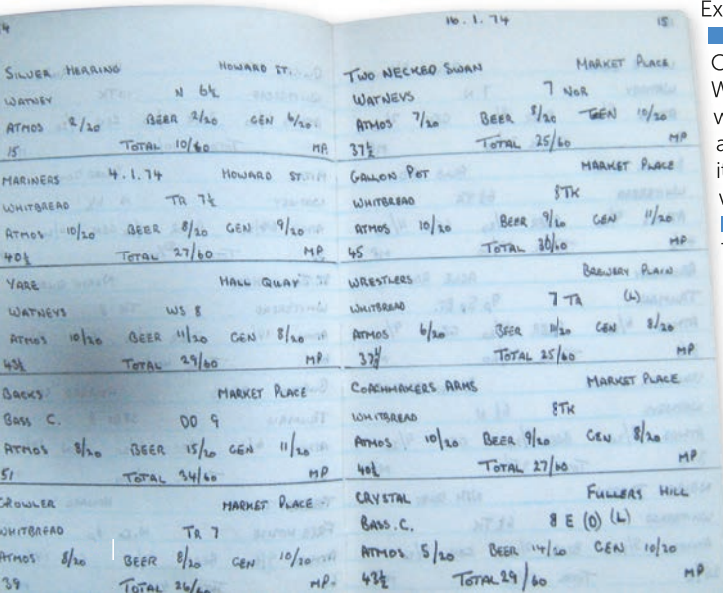 4
SILVER HERRING HOWARD ST.
WATNEY N 6½
ATMOS 2/20 BEER 2/20 GEN 6/20
15 TOTAL 10/60 MP
MARINERS 4.1.74 HOWARD ST.
WHITBREAD TR 7½
ATMOS 10/20 BEER 8/20 GEN 9/20
40½ TOTAL 27/60 MP
YARE HALL QUAY
WATNEYS WS 8
ATMOS 10/20 BEER 11/20 GEN 8/20
43½ TOTAL 29/60 MP
BACKS MARKET PLACE
BASS C. DD 9
ATMOS 8/20 BEER 15/20 GEN 11/20
51 TOTAL 34/60 MP
CROWLER MARKET PLACE
WHITBREAD TR 7
ATMOS 8/20 BEER 8/20 GEN 10/20
39 TOTAL 26/60 MP.
16.1.74 15
TWO NECKED SWAN MARKET PLACE
WATNEYS 7 NOR
ATMOS 7/20 BEER 8/20 GEN 10/20
37½ TOTAL 25/60 MP
GALLON POT MARKET PLACE
WHITBREAD 8TK
ATMOS 10/20 BEER 9/20 GEN 11/20
45 TOTAL 30/60 MP
WRESTLERS BREWERY PLAIN
WHITBREAD 7 TA (L)
ATMOS 6/20 BEER 11/20 GEN 8/20
37½ TOTAL 25/60 MP
COACHMAKERS ARMS MARKET PLACE
WHITBREAD 8TK
ATMOS 10/20 BEER 9/20 GEN 8/20
40½ TOTAL 27/60 MP
CRYSTAL FULLERS HILL
BASS.C. 8 E (D) (L)
ATMOS 5/20 BEER 14/20 GEN 10/20
43½ TOTAL 29/60 MP
Ex